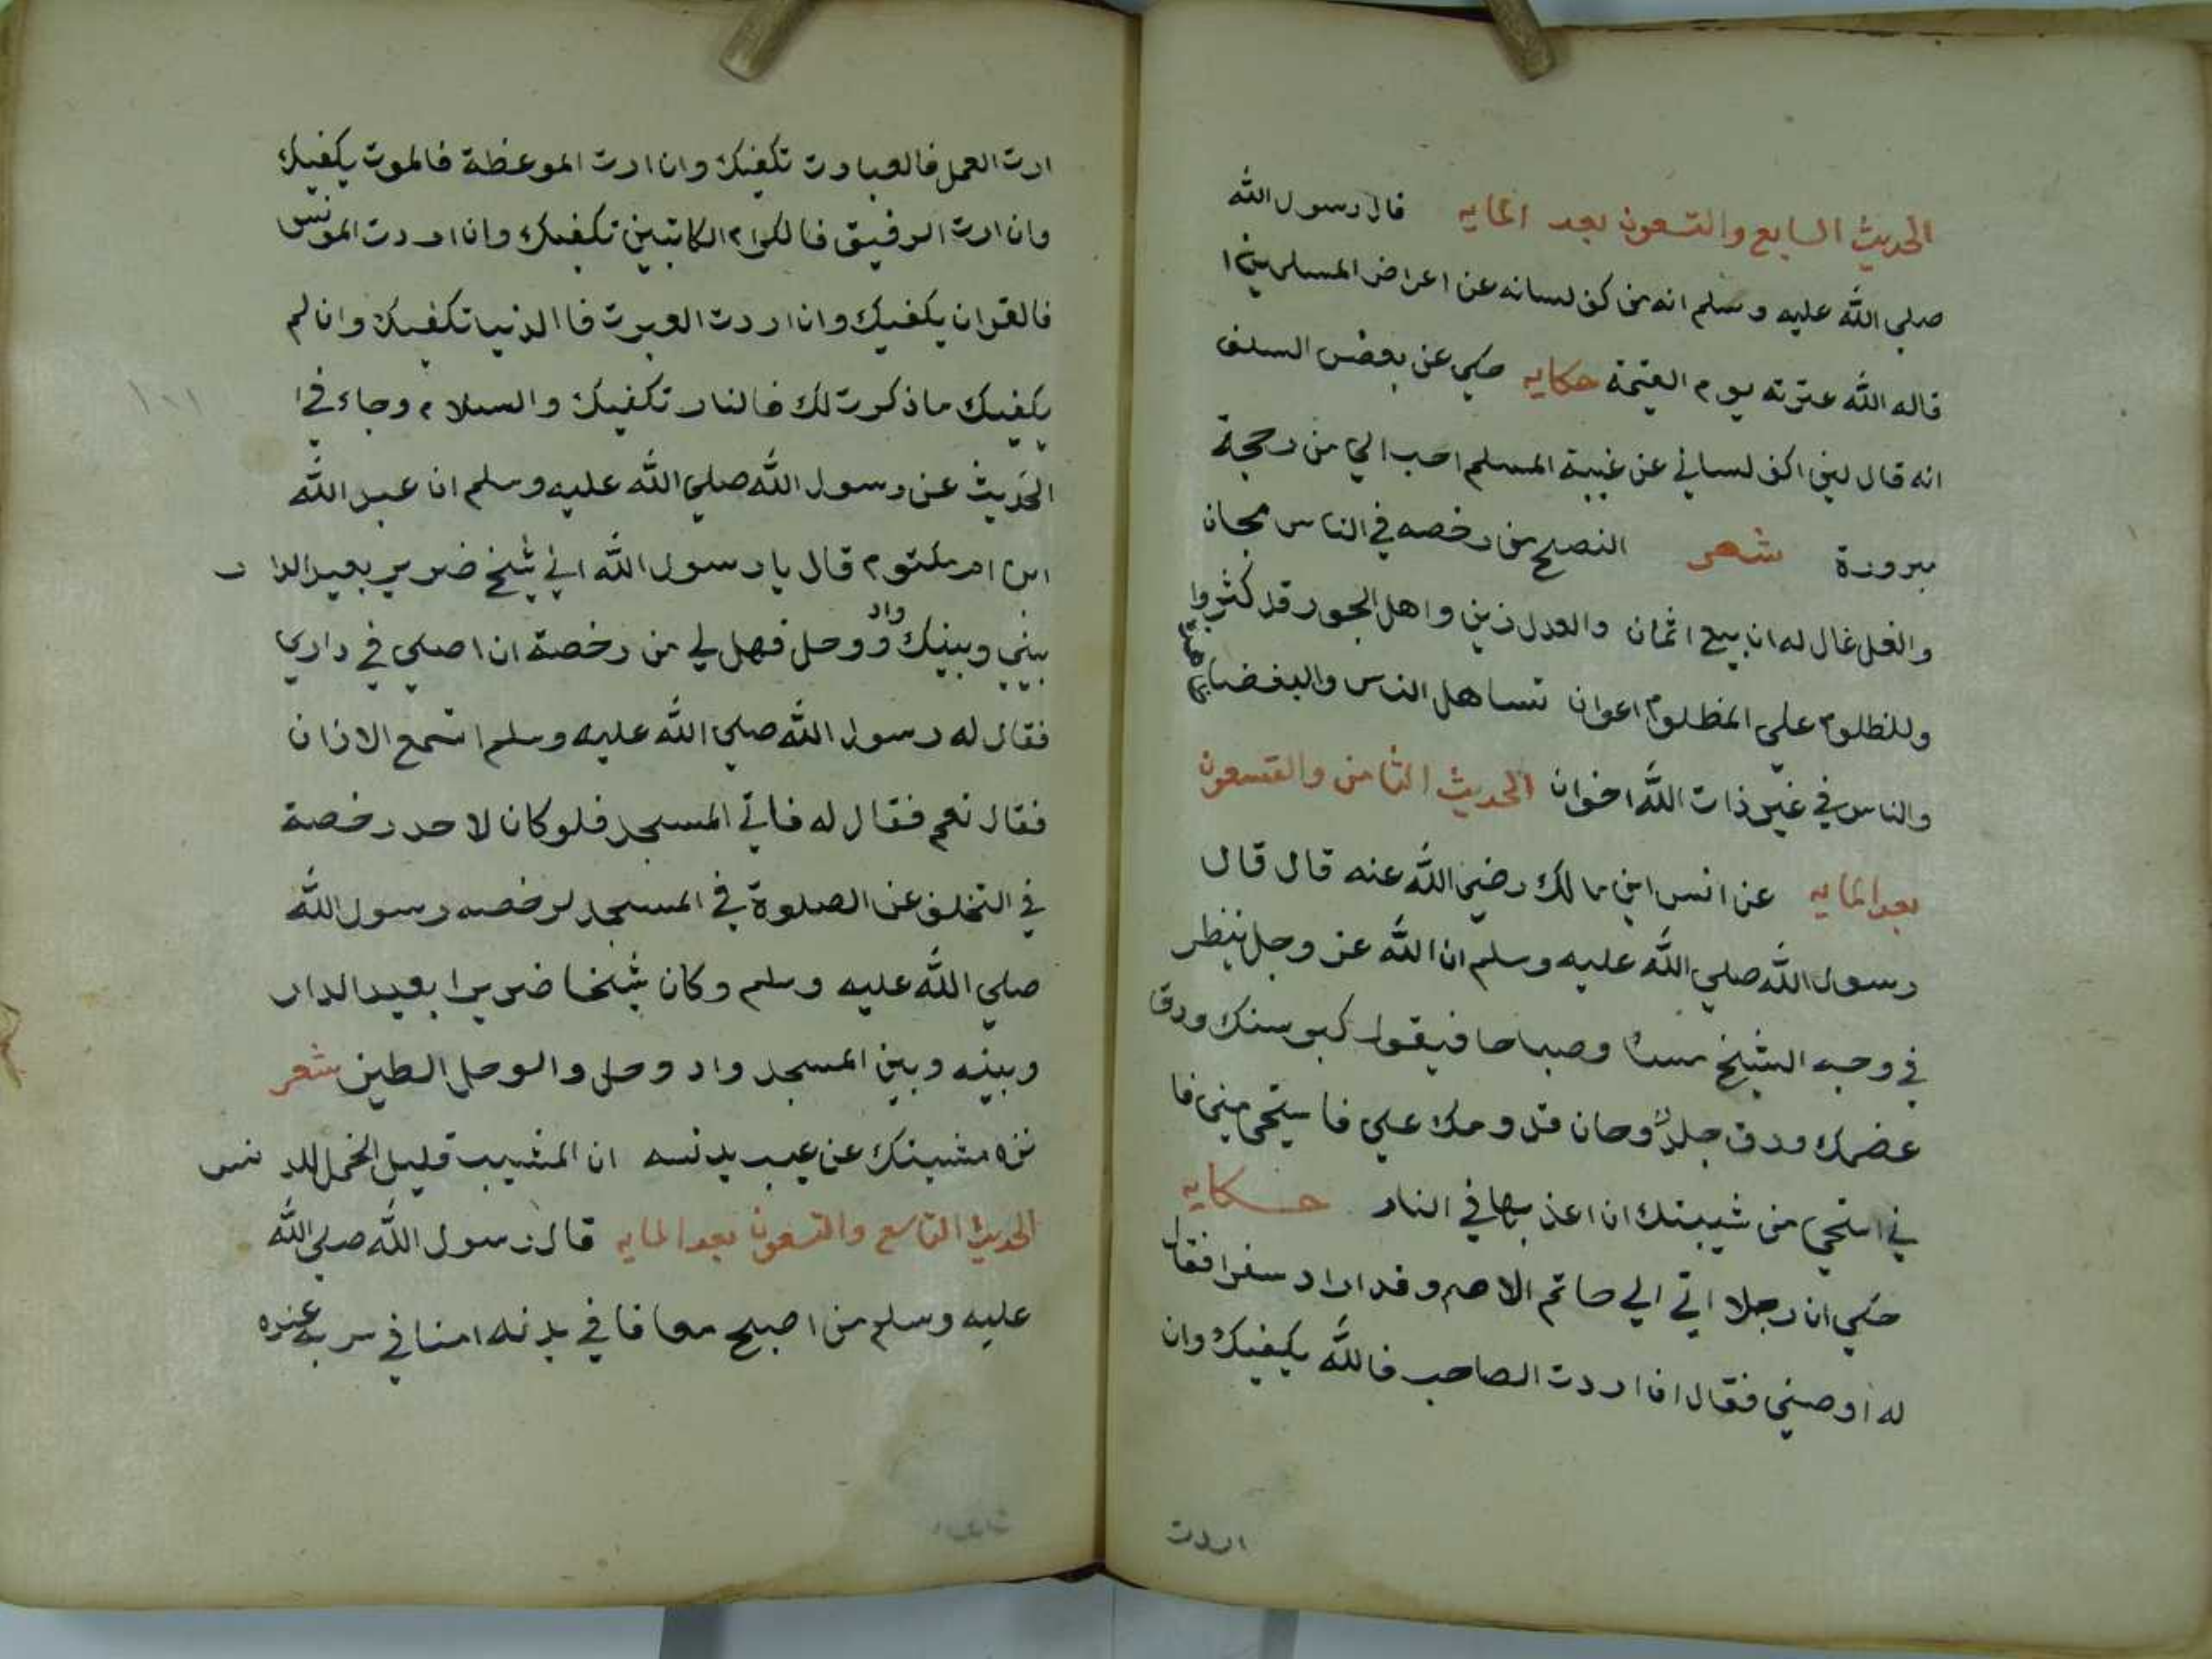 الحديث السابع والتسعون بعد المايه قال رسول الله
صلي الله عليه وسلم انه من كف لسانه عن اعراض المسلمين ا
قاله الله عثرته يوم القيمة حكايه حكي عن بعض السلف
انه قال لين اكف لساني عن غيبة المسلم احب الي من دحجة
مبرورة شعر النصح من رخصه في الناس مجان
والغل غال له ان بيع اثمان والعدل زين واهل الجور قد كثروا
وللظلوم علي المظلوم اعوان تساهل الناس والبغضا
والناس في غير ذات الله اخوان الحديث الثامن والتسعون
بعد المايه عن انس ابن مالك رضي الله عنه قال قال
رسول الله صلي الله عليه وسلم ان الله عز وجل ينظر
في وجه الشيخ مساء وصباحا فيقول كبر سنك ودق
عضمك ورق جلدك وحان قدومك علي فاستحي مني فا
ني استحي من شيبتك ان اعذبها في النار حكايه
حكي ان رجلا اتي الي حاتم الاصم وقد اراد سفرا فقال
له اوصني فقال ان اردت الصاحب فالله يكفيك وان
اردت
ارت العمل فالعبادت تكفيك وان ارت الموعظة فالموت يكفيك
وان ارت الرفيق فالكرام الكاتبين تكفيك وان اردت المونس
فالقران يكفيك وان اردت العبرت فاالدنيا تكفيك وان لم
يكفيك ماذكرت لك فالنار تكفيك والسلام وجاء في ا
الحديث عن رسول الله صلي الله عليه وسلم ان عبد الله
ابن ام مكتوم قال يا رسول الله اني شيخ ضرير بعيد الدار
بيني وبينك واد ووحل فهل لي من رخصة ان اصلي في داري
فقال له رسول الله صلي الله عليه وسلم اتسمع الاذان
فقال نعم فقال له فاتي المسجد فلو كان لاحد رخصة
في التخلف عن الصلوة في المسجد لرخصه رسول الله
صلي الله عليه وسلم وكان شيخا ضريرا بعيد الدار
وبينه وبين المسجد واد وحل والوحل الطين شعر
نزه مشيبك عن عيب يدنسه ان المشيب قليل الحمل للدنس
الحديث التاسع والتسعون بعد المايه قال رسول الله صلي الله
عليه وسلم من اصبح معافا في بدنه امنا في سربه عنده